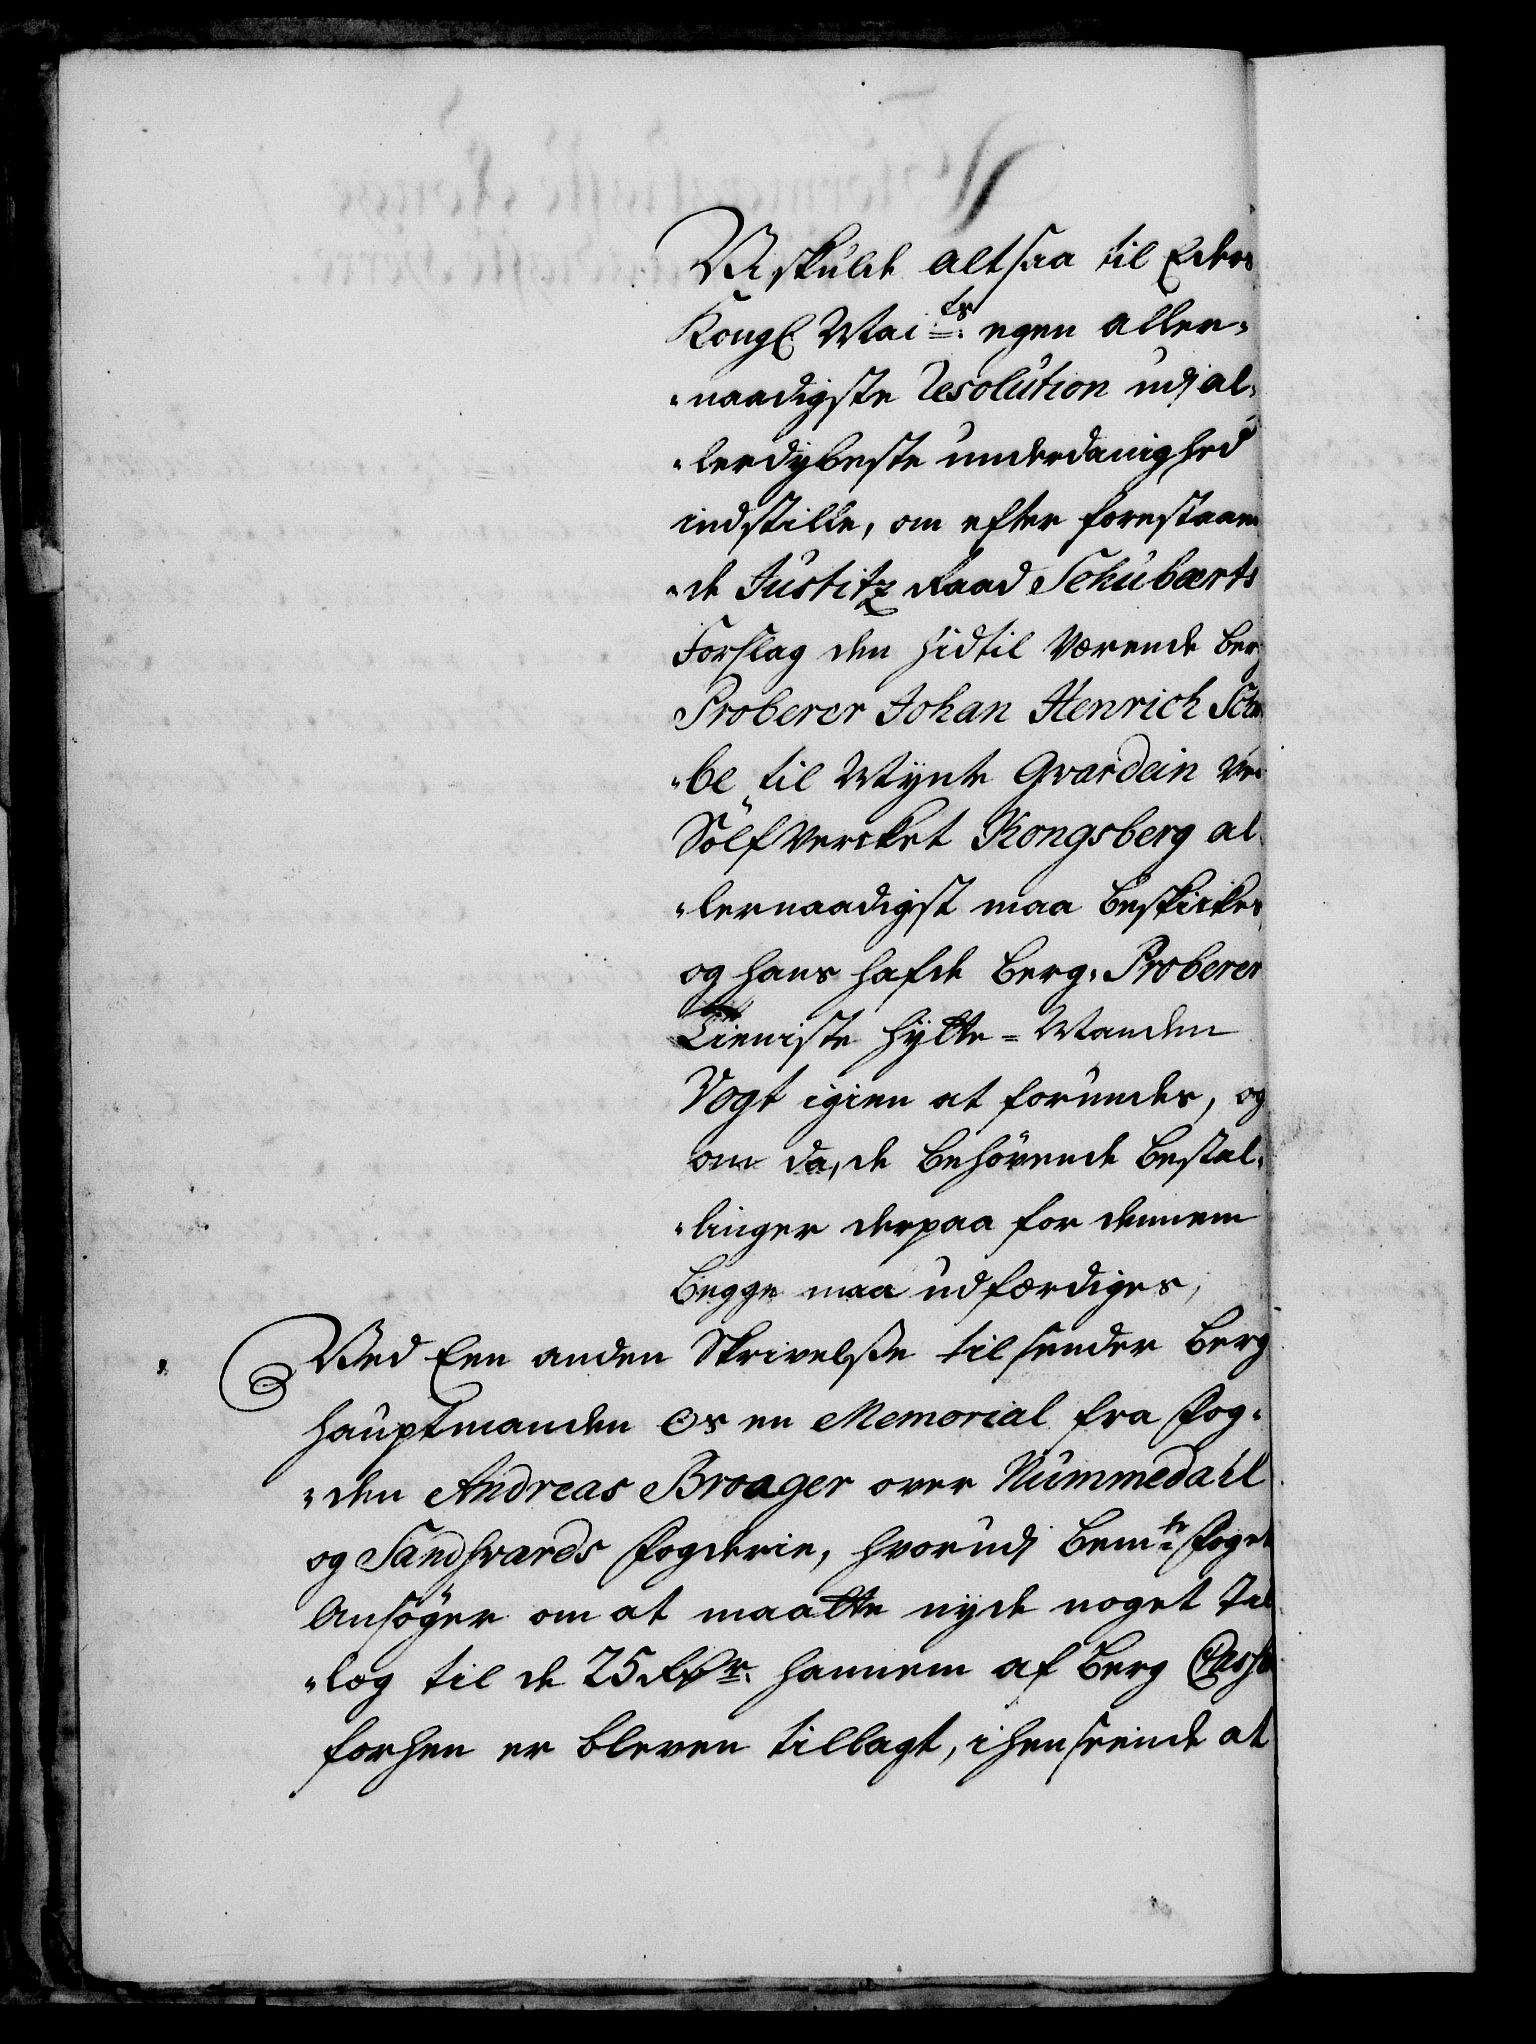 Vi skulde altsaa til Eders
Kongl Mai ts egen aller-
naadigste Resolution udj al-
lerdybeste underdanighed
indstille, om efter forestaaen
de Justitz Raad Schubærts
Forslag den hidtil værende Berg
Proberer Johan Henrich
be til Mynte Gvardein ved
Sölf Verket Kongsberg al
lernaadigst maa beskickes,
og hans hafde Berg-Proberer
Tieniste Hytte-Manden
Vogt igien at forundes, og
om da, de behörende Bestal-
linger derpaa for dennem
begge maa udfærdiges,
Ved Een anden Skrivelsse tilsender Berg
Hauptmanden Os en Memorial fra Fog-
den Andreas Broager over Nummedahl
og Sandsværds Fogderie, hvorudj bem te Foget
Ansöger om at maatte nyde noget Til
læg til de 25 Rdr. hannem af Berg Cassa
forhen er bleven tillagt, i henseende at